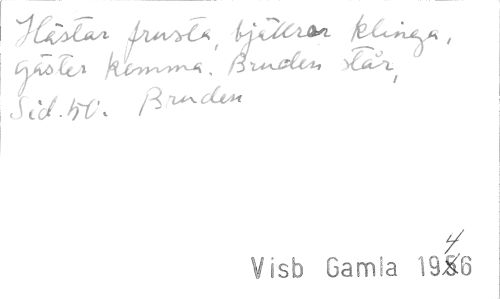 Hästar frusta, bjällror klinga,
gäster komma. Bruden står,
Sid. 50. Bruden
4
Visb Gamla 1956